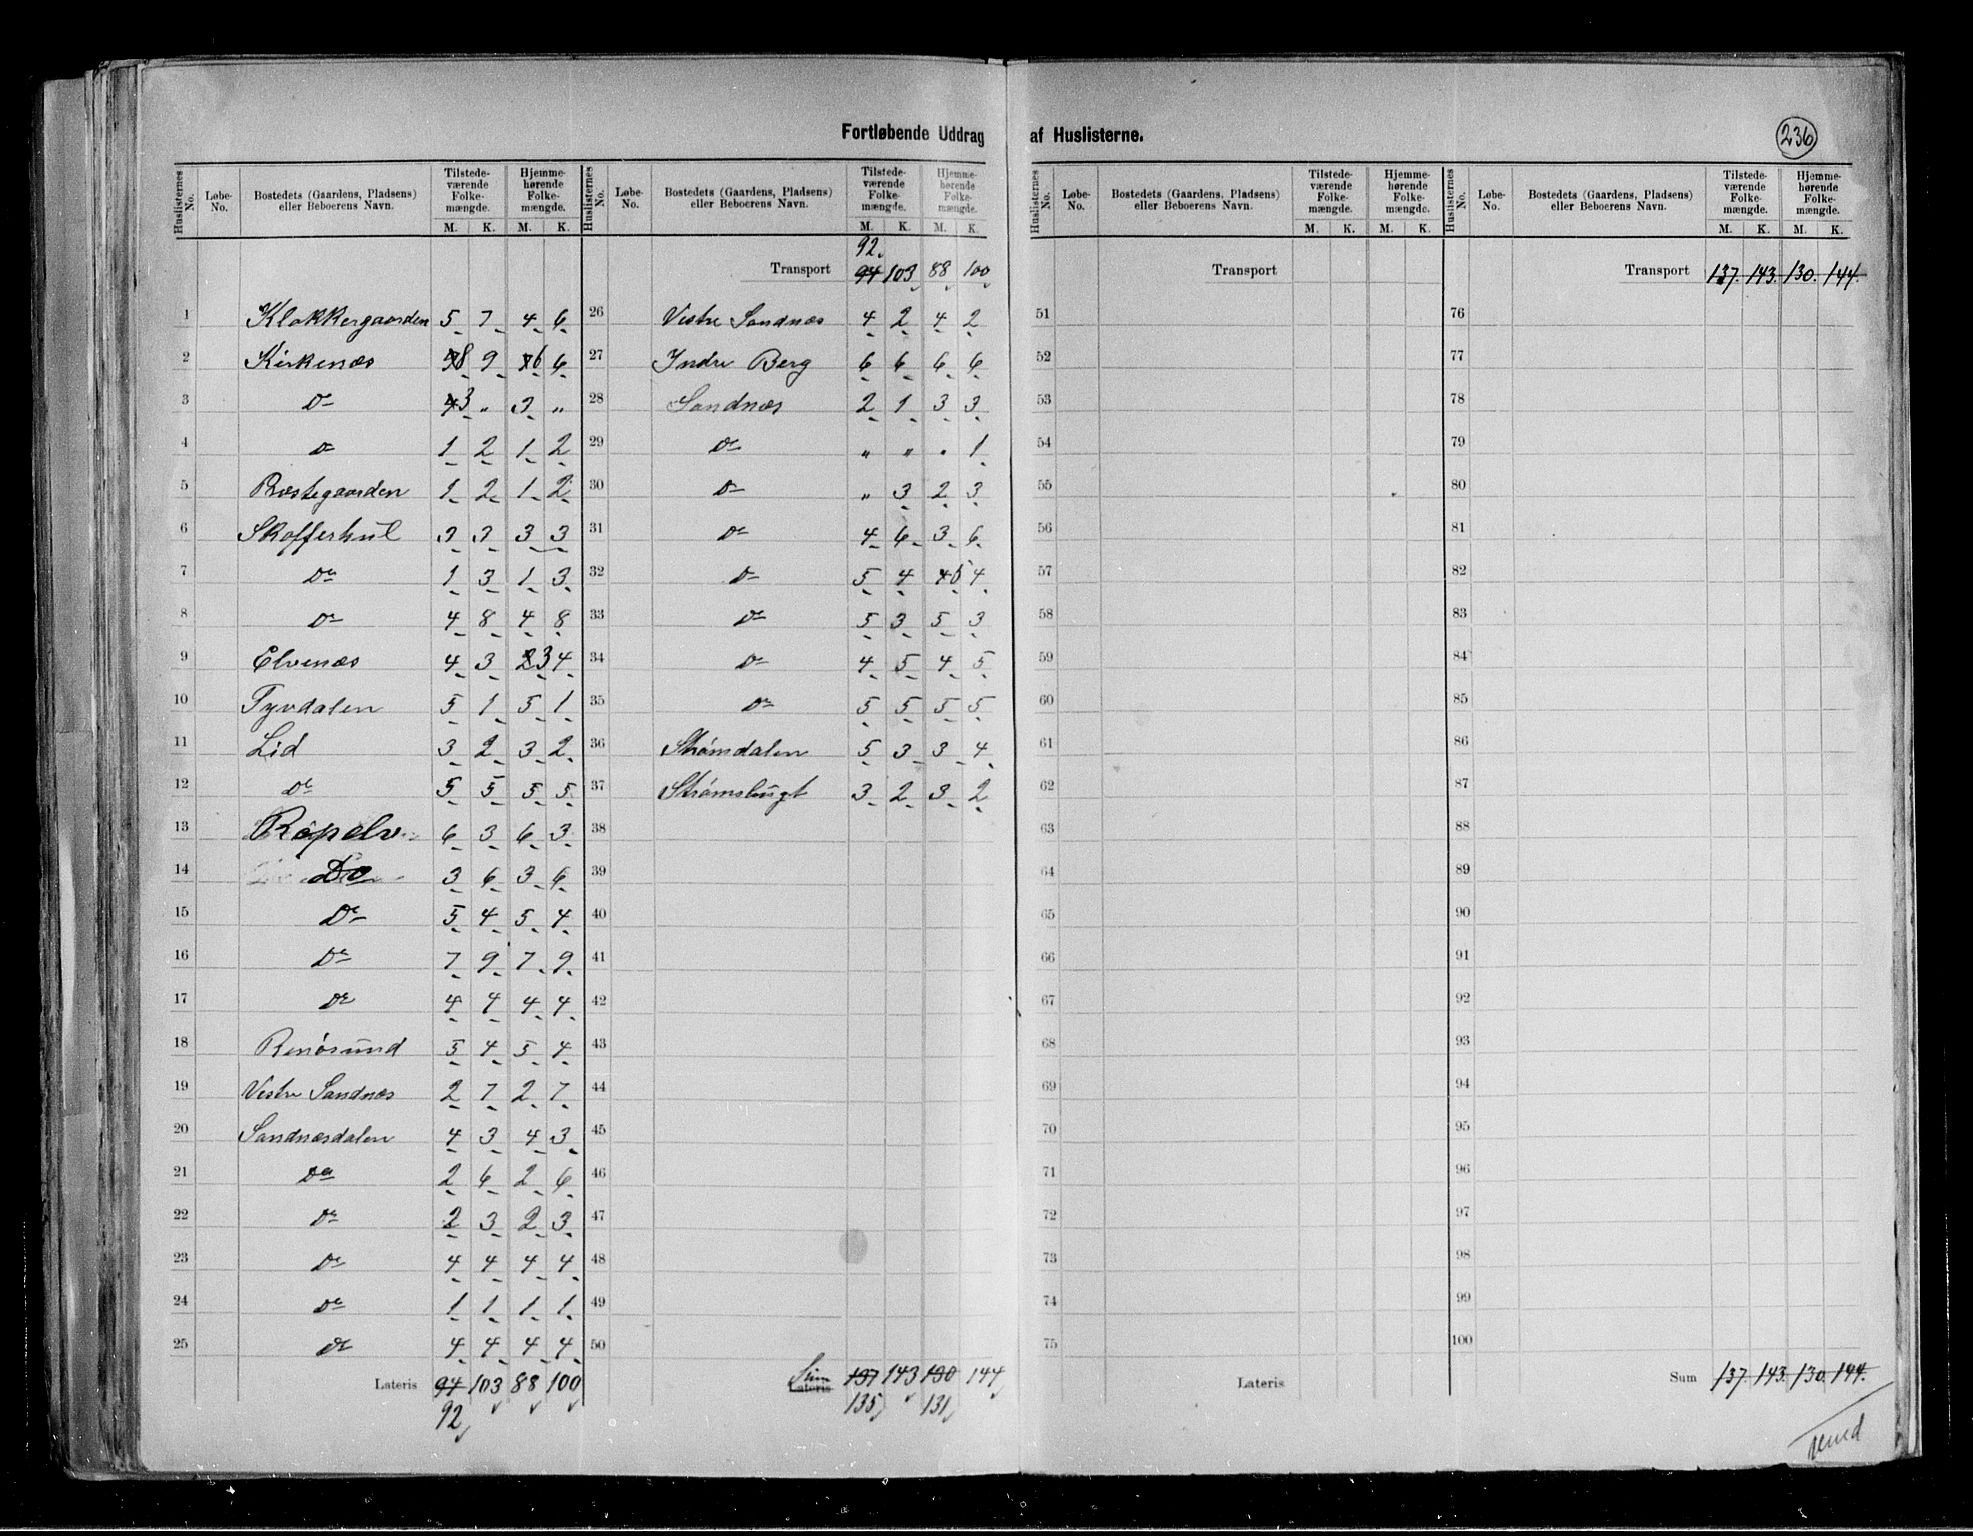 Fortløbende Uddrag af Huslisterne.
236
Huslisternes No. Løbe-No. Bostedets (Gaardens, Pladsens) eller Beboerens Navn. Tilstedeværende Folkemængde. M. K. Hjemmehørende Folkemængde. M. K.
1 Klokkergaarden 5 7 4 6
2 Kirkenæs 8 9 6 6
3 Do 3 " 3 "
4 Do 1 2 1 2
5 Præstegaarden 1 2 1 2
6 Skofferhul 3 3 3 3
7 Do 1 3 1 3
8 Do 4 8 4 8
9 Elvenæs 4 3 3 4
10 Tyvdalen 5 1 5 1
11 Lid 3 2 3 2
12 Do 5 5 5 5
13 Røpelv 6 3 6 3
14 Do 3 6 3 6
15 Do 5 4 5 4
16 Do 7 9 7 9
17 Do 4 4 4 4
18 Renøsund 5 4 5 4
19 Vestre Sandnæs 2 7 2 7
20 Sandnæsdalen 4 3 4 3
21 Do 2 6 2 6
22 Do 2 3 2 3
23 Do 4 4 4 4
24 Do 1 1 1 1
25 Do 4 4 4 4
Lateris 94 103 88 100
92
Huslisternes No. Løbe-No. Bostedets (Gaardens, Pladsens) eller Beboerens Navn. Tilstedeværende Folkemængde. M. K. Hjemmehørende Folkemængde. M. K.
92.
Transport 94 103 88 100
26 Vestre Sandnæs 4 2 4 2
27 Indre Berg 6 6 6 6
28 Sandnæs 2 1 3 3
29 Do " " " 1
30 Do " 3 2 3
31 Do 4 6 3 6
32 Do 5 4 4 5 4
33 Do 5 3 5 3
34 Do 4 5 4 5
35 Do 5 5 5 5
36 Strømdalen 5 3 3 4
37 Strømsbugt 3 2 3 2
38
39
40
41
42
43
44
45
46
47
48
49
50
Sum
Lateris 137 143 130 144
135 131
Huslisternes No. Løbe-No. Bostedets (Gaardens, Pladsens) eller Beboerens Navn. Tilstedeværende Folkemængde. M. K. Hjemmehørende Folkemængde. M. K.
Transport
51
52
53
54
55
56
57
58
59
60
61
62
63
64
65
66
67
68
69
70
71
72
73
74
75
Lateris
Huslisternes No. Løbe-No. Bostedets (Gaardens, Pladsens) eller Beboerens Navn. Tilstedeværende Folkemængde. M. K. Hjemmehørende Folkemængde. M. K.
Transport 137. 143. 130. 144.
76
77
78
79
80
81
82
83
84
85
86
87
88
89
90
91
92
93
94
95
96
97
98
99
100
Sum 137. 143. 130. 144.